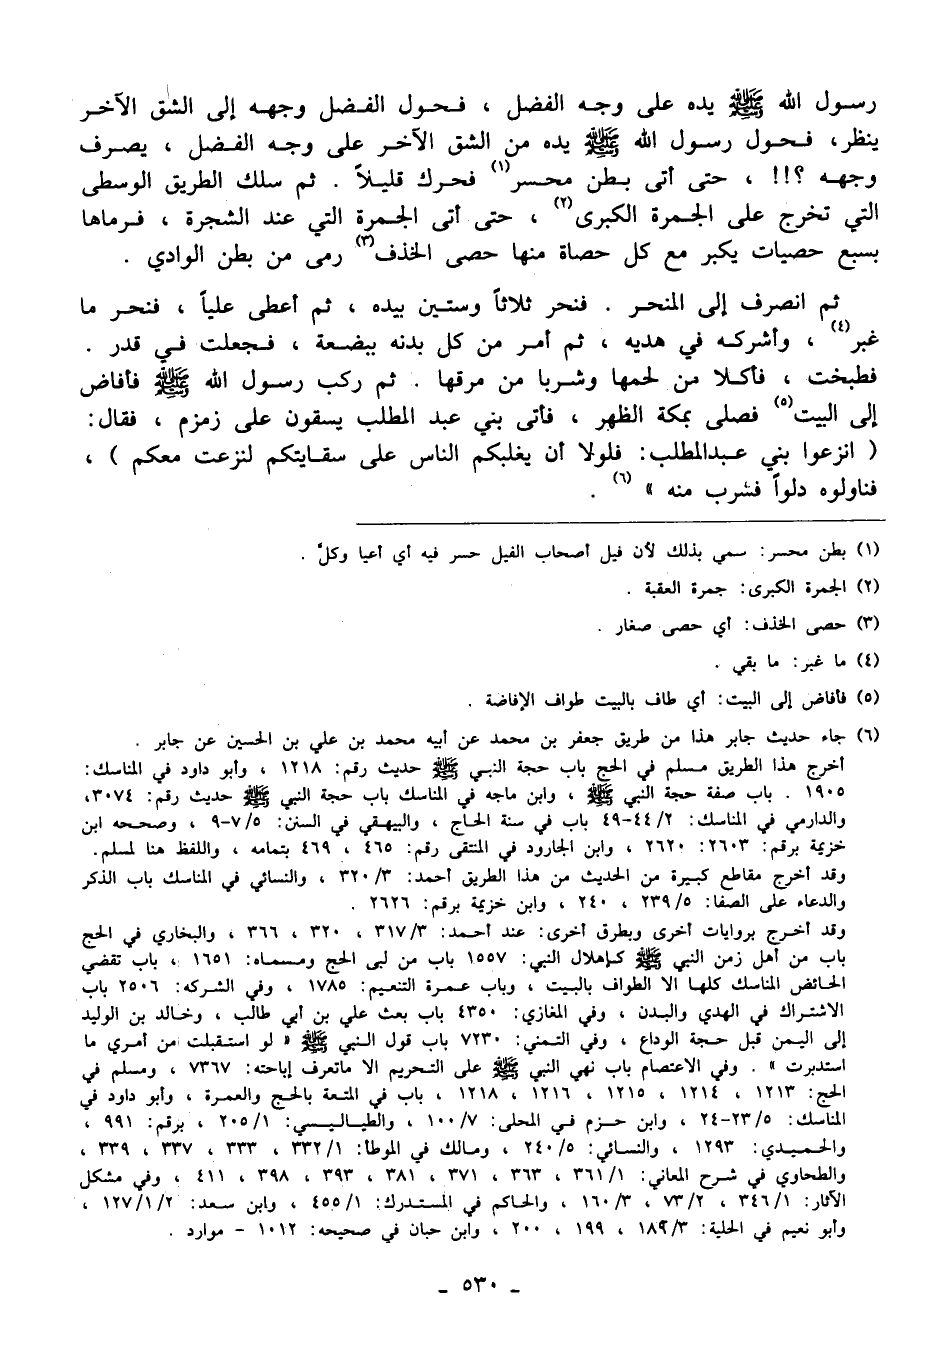 رسول الله ﷺ يده على وجه الفضل ، فحول الفضل وجهه إلى الشق الآخر
ينظر، فحول رسول الله ﷺ يده من الشق الآخر على وجه الفضل ، يصرف
وجهه ؟!! ، حتى أتى بطن محسر(١) فحرك قليلاً . ثم سلك الطريق الوسطى
التي تخرج على الجمرة الكبرى(٢) ، حتى أتى الجمرة التي عند الشجرة ، فرماها
بسبع حصيات يكبر مع كل حصاة منها حصى الخذف(٣) رمى من بطن الوادي .
ثم انصرف إلى المنحر . فنحر ثلاثاً وستين بيده ، ثم أعطى علياً ، فنحر ما
غبر(٤) ، وأشركه في هديه ، ثم أمر من كل بدنه ببضعة ، فجعلت في قدر .
فطبخت ، فأكلا من لحمها وشربا من مرقها . ثم ركب رسول الله ﷺ فأفاض
إلى البيت(٥) فصلى بمكة الظهر ، فأتى بني عبد المطلب يسقون على زمزم ، فقال:
( انزعوا بني عبدالمطلب: فلولا أن يغلبكم الناس على سقايتكم لنزعت معكم ) ،
فناولوه دلواً فشرب منه » (٦) .
(١) بطن محسر: سمي بذلك لأن فيل أصحاب الفيل حسر فيه أي أعيا وكلَّ .
(٢) الجمرة الكبرى: جمرة العقبة .
(٣) حصى الخذف: أي حصى صغار .
(٤) ما غبر: ما بقي .
(٥) فأفاض إلى البيت: أي طاف بالبيت طواف الإفاضة .
(٦) جاء حديث جابر هذا من طريق جعفر بن محمد عن أبيه محمد بن علي بن الحسين عن جابر .
أخرج هذا الطريق مسلم في الحج باب حجة النبي ﷺ حديث رقم: ١٢١٨ ، وأبو داود في المناسك:
١٩٠٥ . باب صفة حجة النبي ﷺ ، وابن ماجه في المناسك باب حجة النبي ﷺ حديث رقم: ٣٠٧٤،
والدارمي في المناسك: ٤٤/٢-٤٩ باب في سنة الحاج ، والبيهقي في السنن: ٧/٥-٩ ، وصححه ابن
خزيمة برقم: ٢٦٠٣: ٢٦٢٠ ، وابن الجارود في المنتقى رقم: ٤٦٥ ، ٤٦٩ بتمامه ، واللفظ هنا لمسلم.
وقد أخرج مقاطع كبيرة من الحديث من هذا الطريق أحمد: ٣٢٠/٣ ، والنسائي في المناسك باب الذكر
والدعاء على الصفا: ٢٣٩/٥ ، ٢٤٠ ، وابن خزيمة برقم: ٢٦٢٦ .
وقد أخرج بروايات أخرى وبطرق أخرى: عند أحمد: ٣١٧/٣ ، ٣٢٠ ، ٣٦٦ ، والبخاري في الحج
باب من أهل زمن النبي ﷺ كإهلال النبي: ١٥٥٧ باب من لبى الحج ومسماه: ١٦٥١ ، باب تقضي
الحائض المناسك كلها الا الطواف بالبيت ، وباب عمرة التنعيم: ١٧٨٥ ، وفي الشركه: ٢٥٠٦ باب
الاشتراك في الهدي والبدن ، وفي المغازي: ٤٣٥٠ باب بعث علي بن أبي طالب ، وخالد بن الوليد
إلى اليمن قبل حجة الوداع ، وفي التمني: ٧٢٣٠ باب قول النبي ﷺ « لو استقبلت من أمري ما
استدبرت » . وفي الاعتصام باب نهي النبي ﷺ على التحريم الا ماتعرف إباحته: ٧٣٦٧ ، ومسلم في
الحج: ١٢١٣ ، ١٢١٤ ، ١٢١٥ ، ١٢١٦ ، ١٢١٨ ، باب في المتعة بالحج والعمرة ، وأبو داود في
المناسك: ٢٣/٥-٢٤ ، وابن حزم في المحلى: ١٠٠/٧ ، والطيالسي: ٢٠٥/١ ، برقم: ٩٩١ ،
والحميدي: ١٢٩٣ ، والنسائي: ٢٤٠/٥ ، ومالك في الموطأ: ٣٣٢/١ ، ٣٣٣ ، ٣٣٧ ، ٣٣٩ ،
والطحاوي في شرح المعاني: ٣٦١/١ ، ٣٦٣ ، ٣٧١ ، ٣٨١ ، ٣٩٣ ، ٣٩٨ ، ٤١١ ، وفي مشكل
الآثار: ٣٤٦/١ ، ٧٣/٢ ، ١٦٠/٣ ، والحاكم في المستدرك: ٤٥٥/١ ، وابن سعد: ١٢٧/١/٢ ،
وأبو نعيم في الحلية: ١٨٩/٣ ، ١٩٩ ، ٢٠٠ ، وابن حبان في صحيحه: ١٠١٢ - موارد .
- ٥٣٠ -